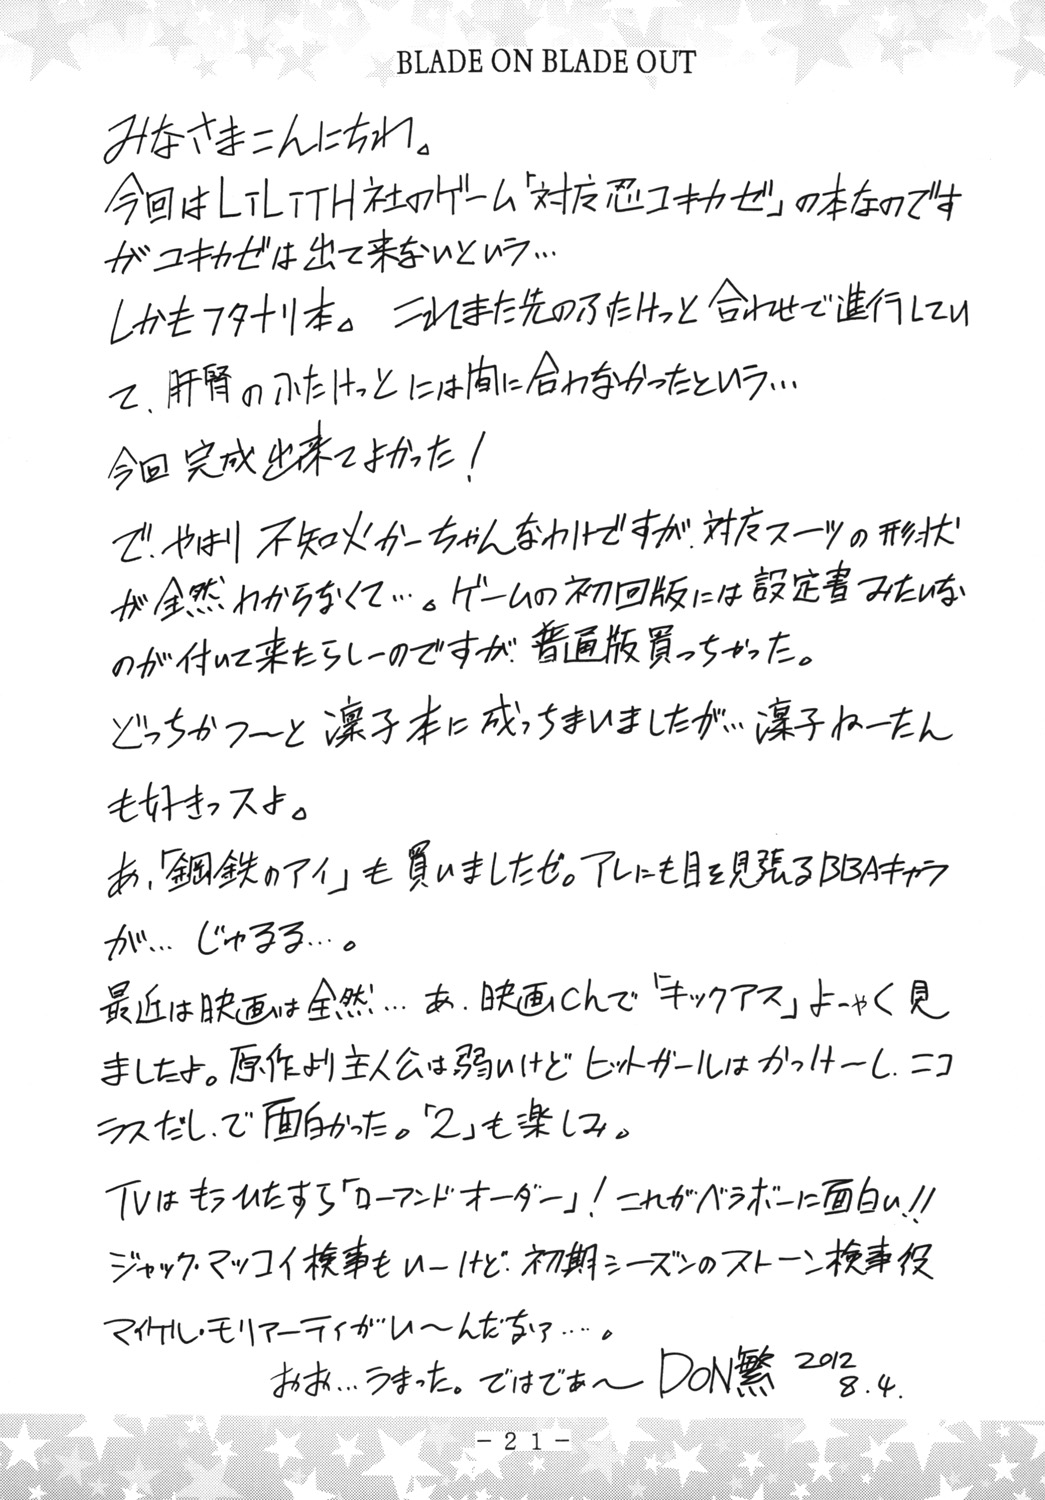 BLADE ON BLADE OUT
みなさまこんにちわ。
今回はLiLiTH社のゲーム「対魔忍ユキカゼ」の本なのです
がユキカゼは出て来ないという…
しかもフタナリ本。 これまた先のふたけっと合わせで進行してい
て、肝腎のふたけっとには間に合わなかったという…
今回完成出来てよかった！
で、やはり不知火かーちゃんなわけですが、対魔スーツの形状
が全然わからなくて…。ゲームの初回版には設定書みたいな
のが付いて来たらしーのですが、普通版買っちゃった。
どっちかつ〜と凛子本に成っちまいましたが…凛子ねーたん
も好きっスよ。
あ、「鋼鉄のアイ」も買いましたぜ。アレにも目を見張るBBAキャラ
が… じゅるる…。
最近は映画は全然… あ、映画Chで「キックアス」よーやく見
ましたよ。原作より主人公は弱いけどヒットガールはかっけーし、ニコ
ラスだし、で面白かった。「2」も楽しみ。
TVはもうひたすら「ローアンドオーダー」！これがベラボーに面白い!!
ジャック・マッコイ検事もいーけど、初期シーズンのストーン検事役
マイケル・モリアーティがい〜んだなァ…。
おお…うまった。ではでぁ〜 DON繁 2012
8.4.
－21－